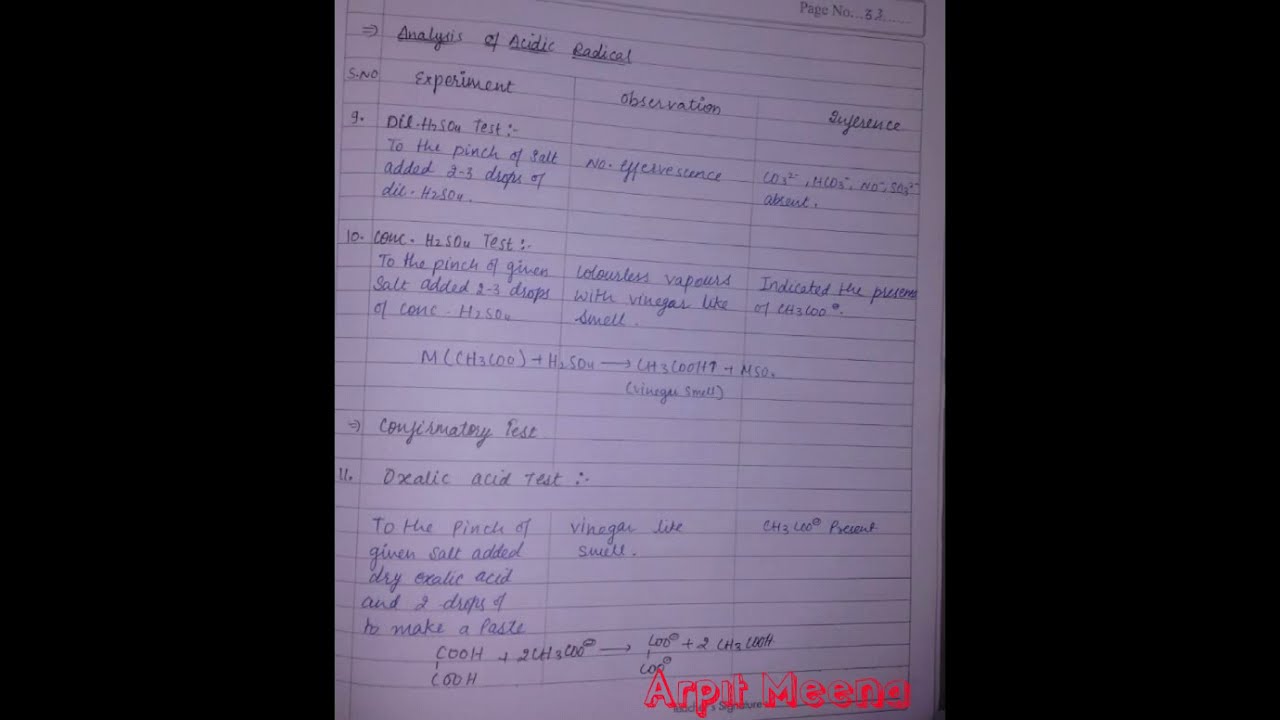 Page No...33......
⇒ Analysis of Acidic Radical
S.NO Experiment Observation Inference
9. Dil. H2SO4 Test :-
To the pinch of salt
added 2-3 drops of
dil. H2SO4.
No. effervescence
CO3²⁻, HCO3⁻, NO⁻, SO3²⁻
absent.
10. Conc. H2SO4 Test :-
To the pinch of given
Salt added 2-3 drops
of conc. H2SO4
Colourless vapours
with vinegar like
smell.
Indicated the presens
of CH3COO⊖.
M(CH3COO) + H2SO4 → CH3COOH↑ + MSO4
(Vinegar Smell)
⇒ Confirmatory Test
11. Oxalic acid Test :-
To the pinch of
given salt added
dry oxalic acid
and 2 drops of
to make a Paste
vinegar like
smell.
CH3COO⊖ Present
COOH + 2CH3COO⊖ → COO⊖ + 2 CH3COOH
COOH COO⊖
Arpit Meena
Teacher's Signature